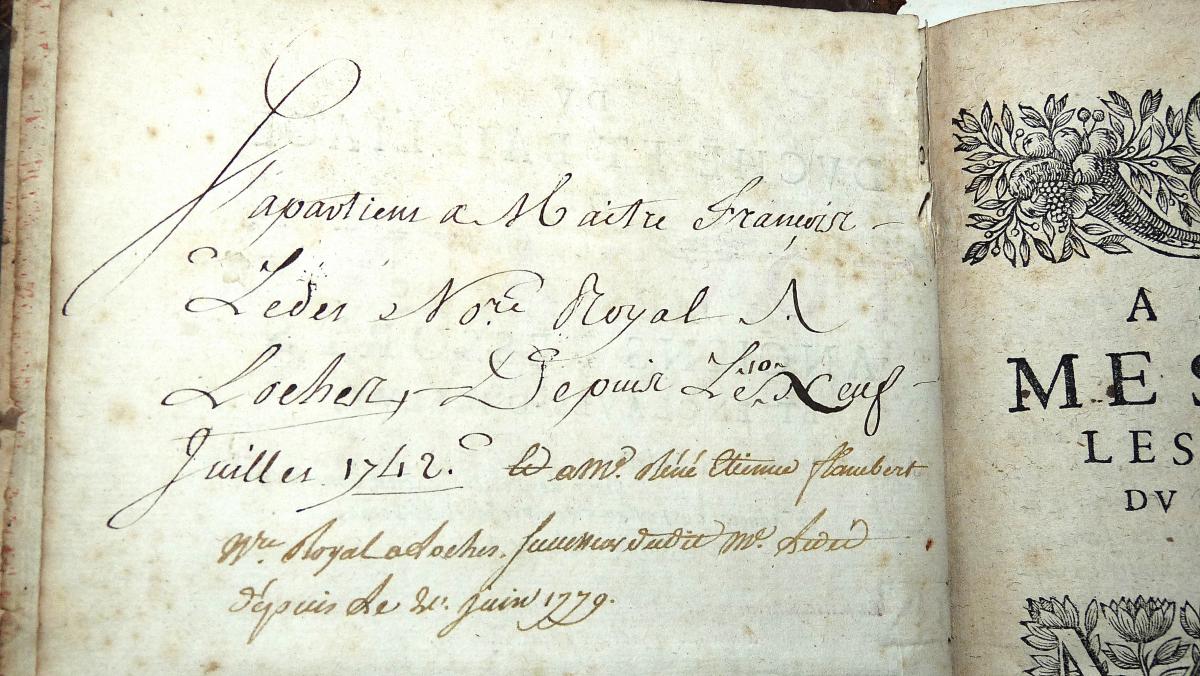 J'apartiens a Maitre François
Ledet No.re Royal A
Loches, Depuis Le Neuf
10
Juillet 1742.
et a Me. Réné Etienne flambert
Nre. Royal a Loches. successeur dudit Me. Ledet
dépuis Le juin 1779.
A
MES
LES
DV